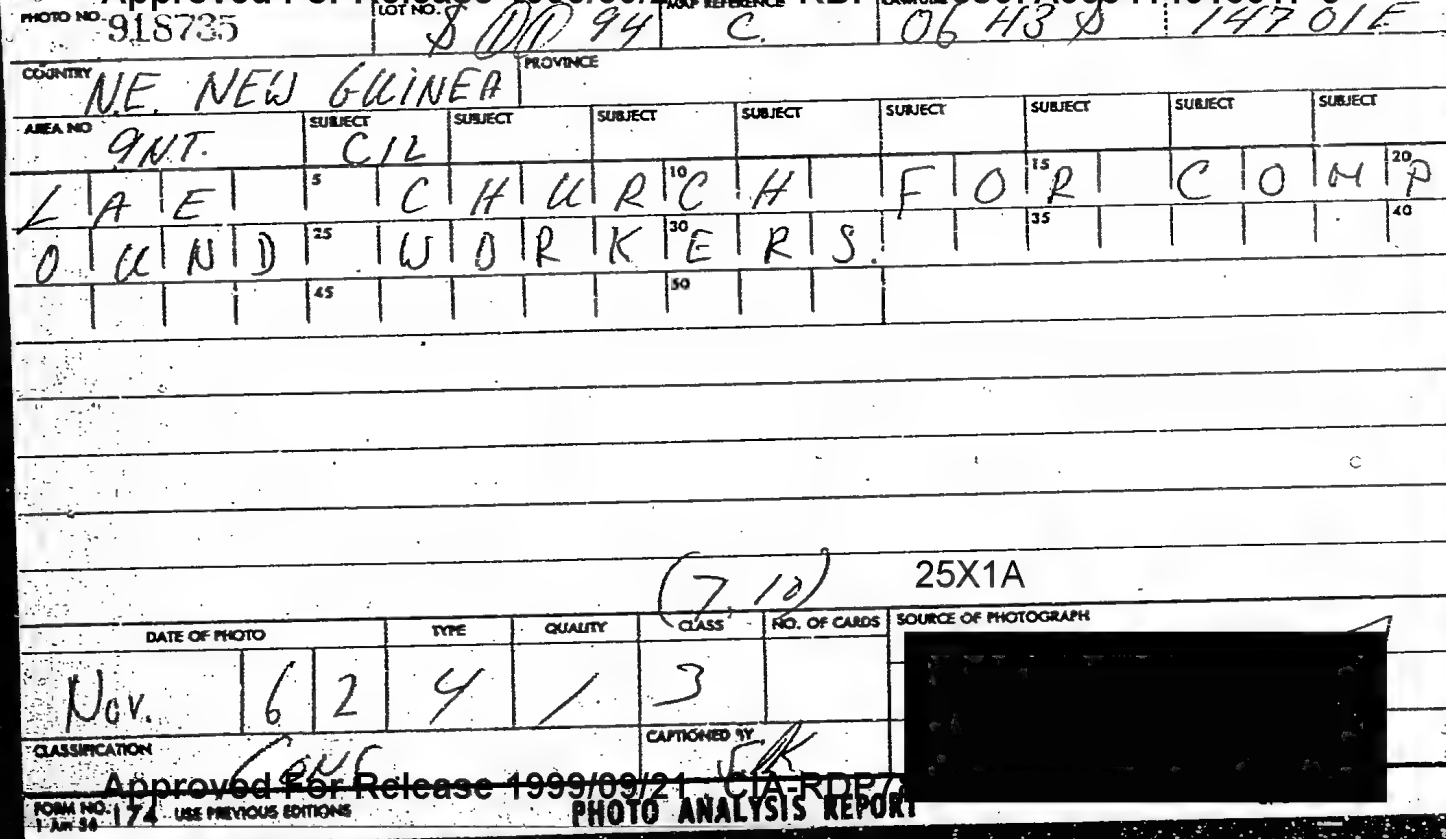 Approved For Release
PHOTO NO. 918735 LOT NO. MAP REFERENCE C. 06 43 S 147 01 E
COUNTRY N.E. NEW GUINEA PROVINCE
AREA NO 9NT. SUBJECT C12 SUBJECT SUBJECT SUBJECT SUBJECT SUBJECT SUBJECT SUBJECT
LAE 5 CHUR 10 CH FOR 15 COMP 20
OUND 25 WORKERS. 30 35 40
45 50
(7, 10) 25X1A
DATE OF PHOTO TYPE QUALITY CLASS NO. OF CARDS SOURCE OF PHOTOGRAPH
Nov. 6 2 4 / 3
CLASSIFICATION CONF CAPTIONED BY
Approved For Release 1999/09/21 CIA-RDP7
FORM NO. 174 USE PREVIOUS EDITIONS PHOTO ANALYSIS REPORT